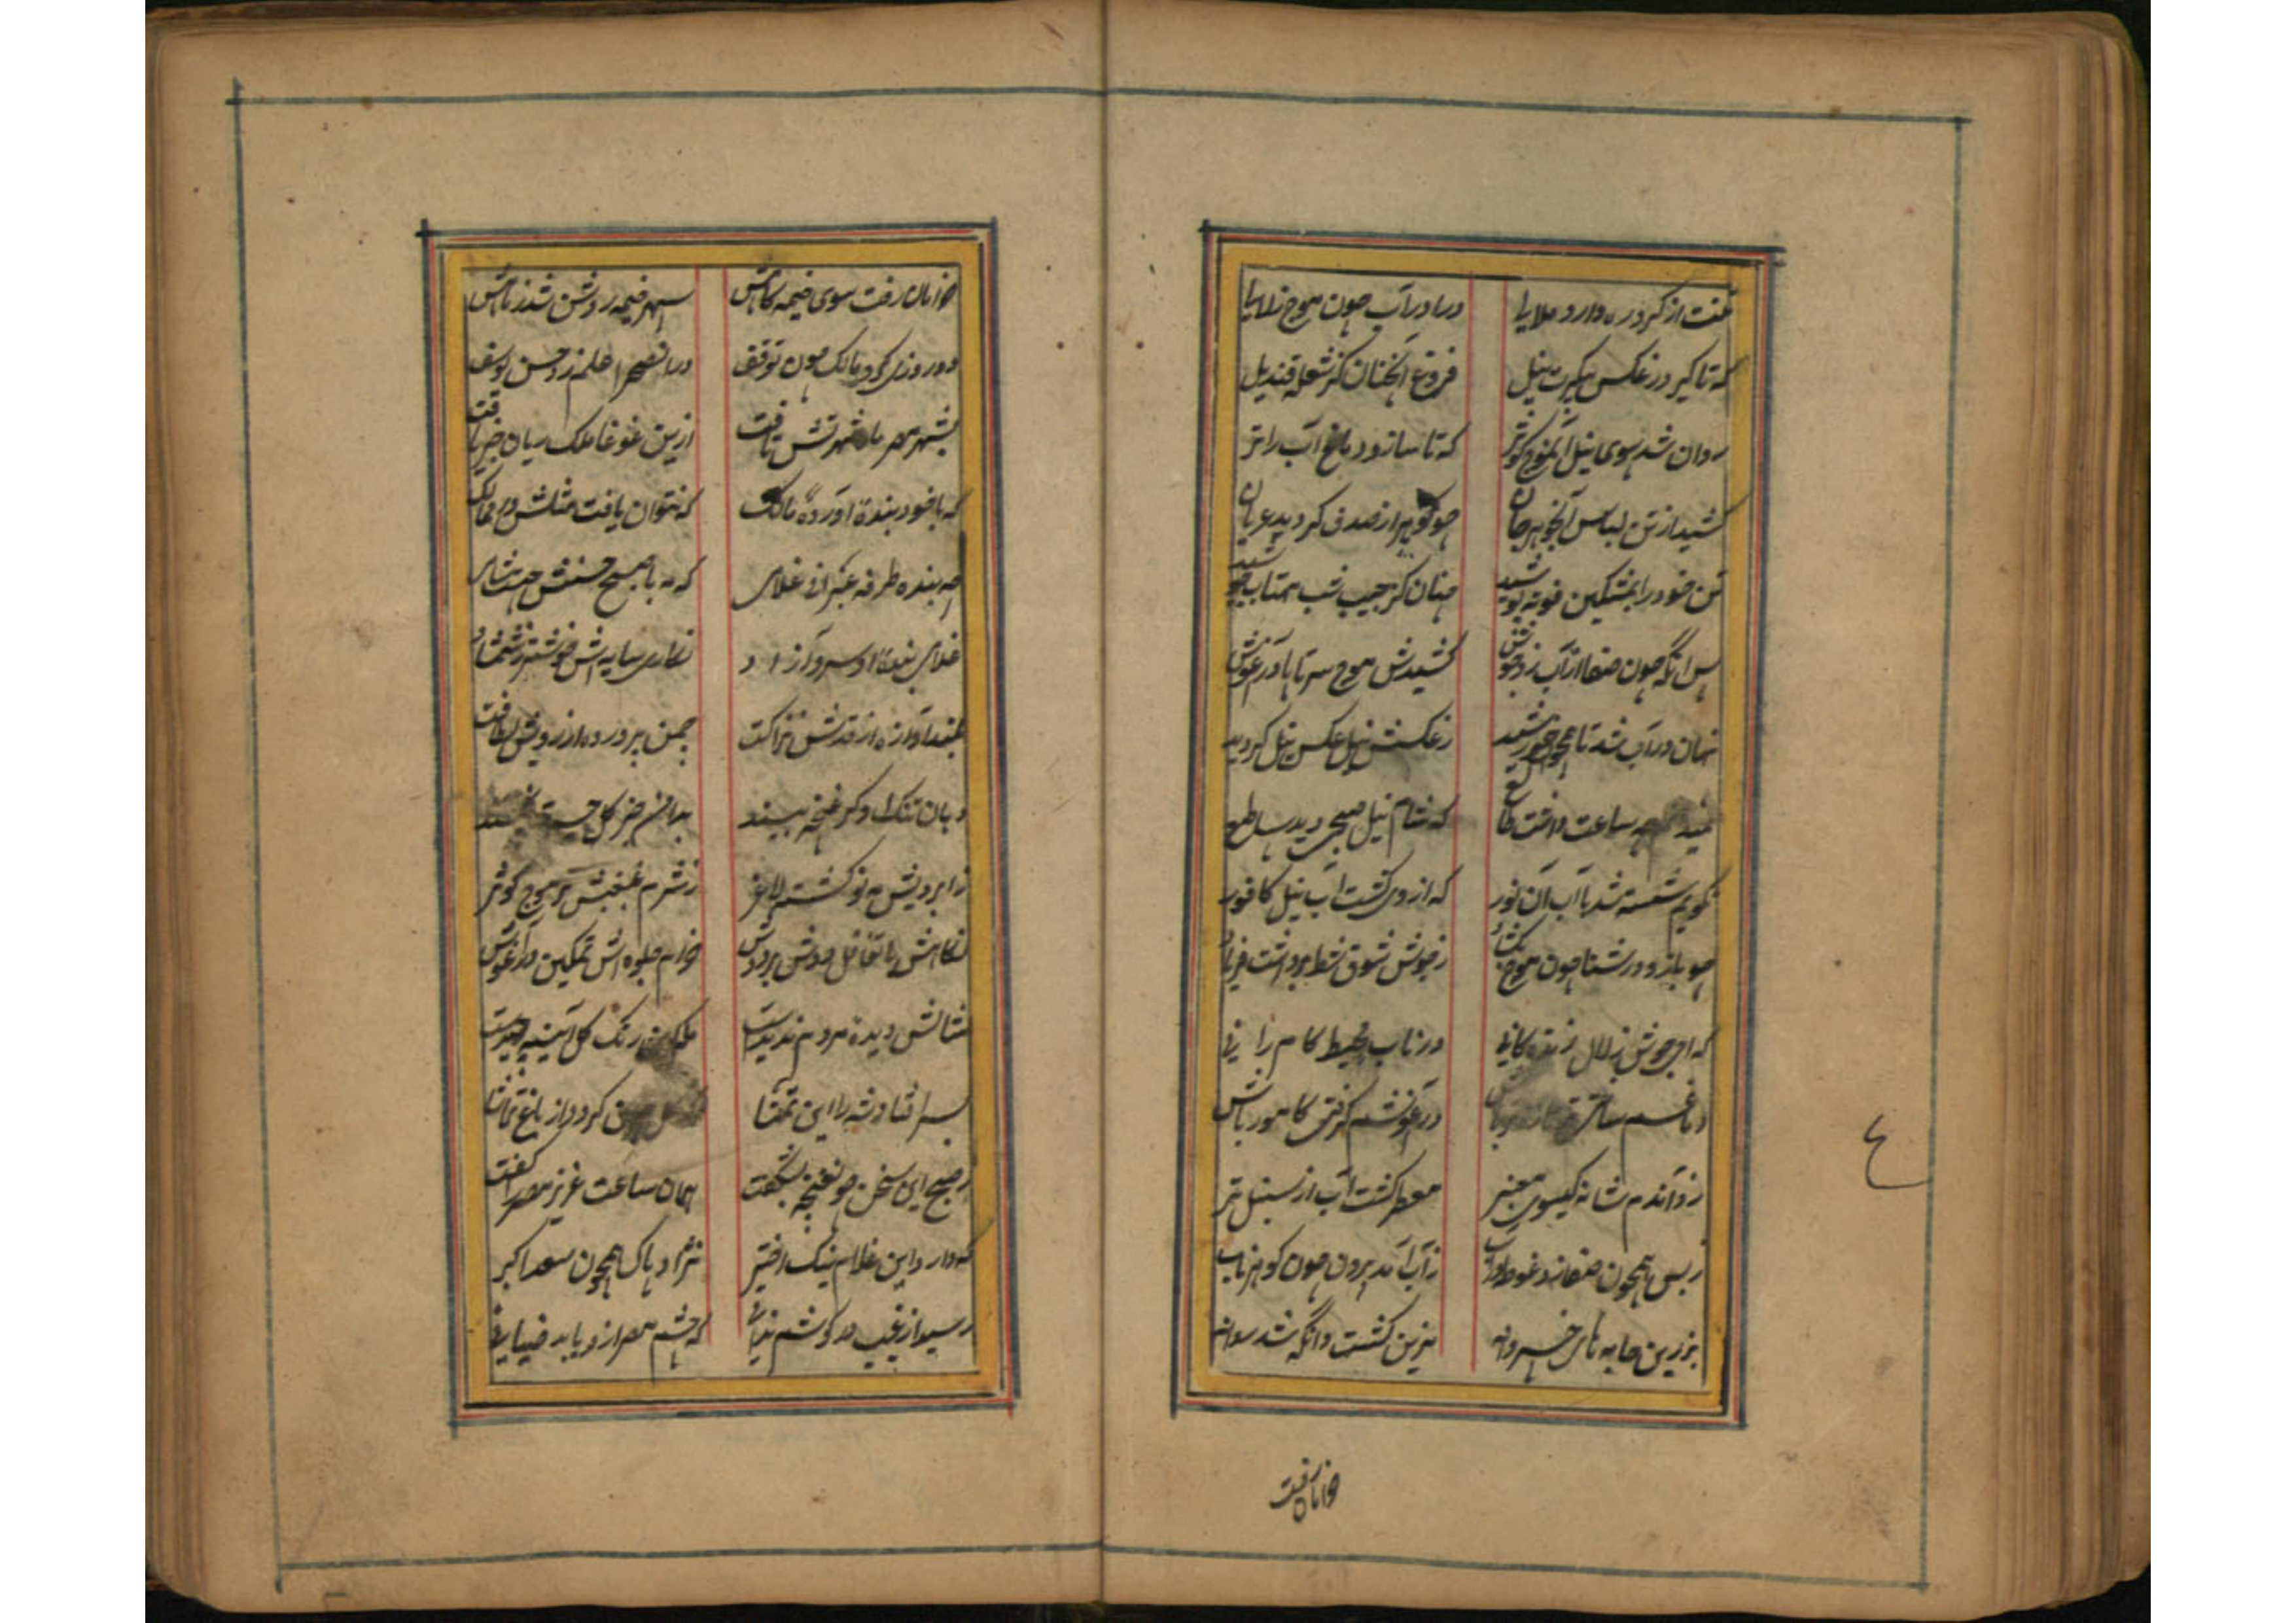 تنت از کرد ره دارد ملایا درا در آب چون موج زلایا
که تا گیرد ز عکس پیکرت نیل فروغ آنچنان کز شعله قندیل
روان شد سوی نیل آن موج کوثر که تا سازد دماغ آب را تر
کشید از تن لباس آنجوهر جان چو گوهر از صدف گردید عریان
تن خود را بمشکین فوته پوشید چنان کز جیب شب مهتاب جوشید
پس آنگه چون صفا از آب زد جوش کشیدش موج سر تا پا در آغوش
نهان در آب شد تا همچو خورشید ز عکسش نیل عکس نیل گردید
چه ساعت داشت طالع که شام نیل صبحی دید ساطع
نگویم شسته شد با آب آن نور که از وی گشت آب نیل کافور
چو بازو در شنا چون موج بگشاد ز جوش شوق شط برداشت فریاد
که ای جوش زلال زندگانی در نایاب محیط کامرانی
دماغم ساختی در آغوشم گرفتی کامور باش
زد آندم شانه گیسوی معنبر معطر گشت آب از سنبل تر
ز بس همچون صفا زد غوطه در آب ز آب آمد برون چون گوهر ناب
بزرین جامه های خسروانه مزین گشت وانگه شد روانه
خرامان رفت
خرامان رفت سوی خیمه گاهش سپهر خیمه روشن شد ز ماهش
دو روزی کرد مالک چون توقف در آن صحرا علم زد حسن یوسف
بشهر مصر ماه شهرتش تافت ازین غوغا ملک ریان خبر یافت
که با خود بندهٔ آورده مالک که نتوان یافت مثلش در ممالک
چه بنده طرفه عنبر فر غلامی که مه با صبح حسنش هست شامی
غلامی بندهٔ او سرو آزاد نگاری سایه اش خوشتر ز شمشاد
بلند آوازه از قدش نزاکت چمن پرورده از رویش لطافت
دهان تنگ او گر غنچه بیند
ز ابرویش مه نو گشته لاغر ز شرم غبغبش تر موج کوثر
نگاهش با تغافل دوش بر دوش خرام جلوه اش تمکین در آغوش
مثالش دیدهٔ مردم ندیدست رنگ گل آیینه چیدست
بسر افتاد شه را این تمنا کردد از باغ تماشا
ز صبح این سخن چون غنچه بشکفت همان ساعت عزیز مصر را گفت
که دارد این غلام نیک اختر نژاد پاک همچون سعد اکبر
رسید از غیب در گوشم ندایی که چشم مصر ازو یابد ضیایی